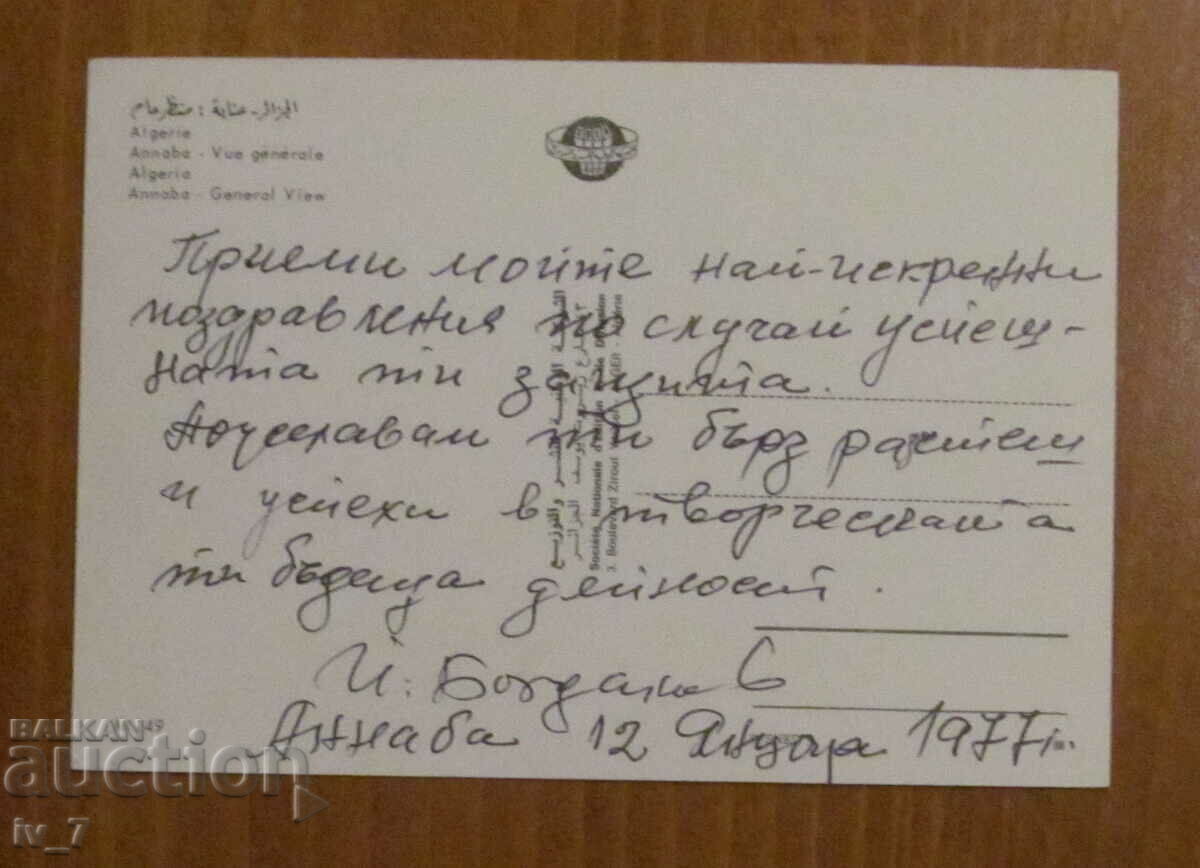 الجزائر - عنابة : منظر عام
Algerie
Annaba - Vue générale
Algeria
Annaba - General View
Приеми моите най-искренни
поздравления по случай успеш-
ната ти защита.
Пожелавам ти бърз растеж
и успехи в творческата
ти бъдеща дейност.
Й. Богданов
Аннаба 12 Януари 1977 г.
Société Nationale
3, Boulevard Zirout
49
BALKAN
auction
iv_7